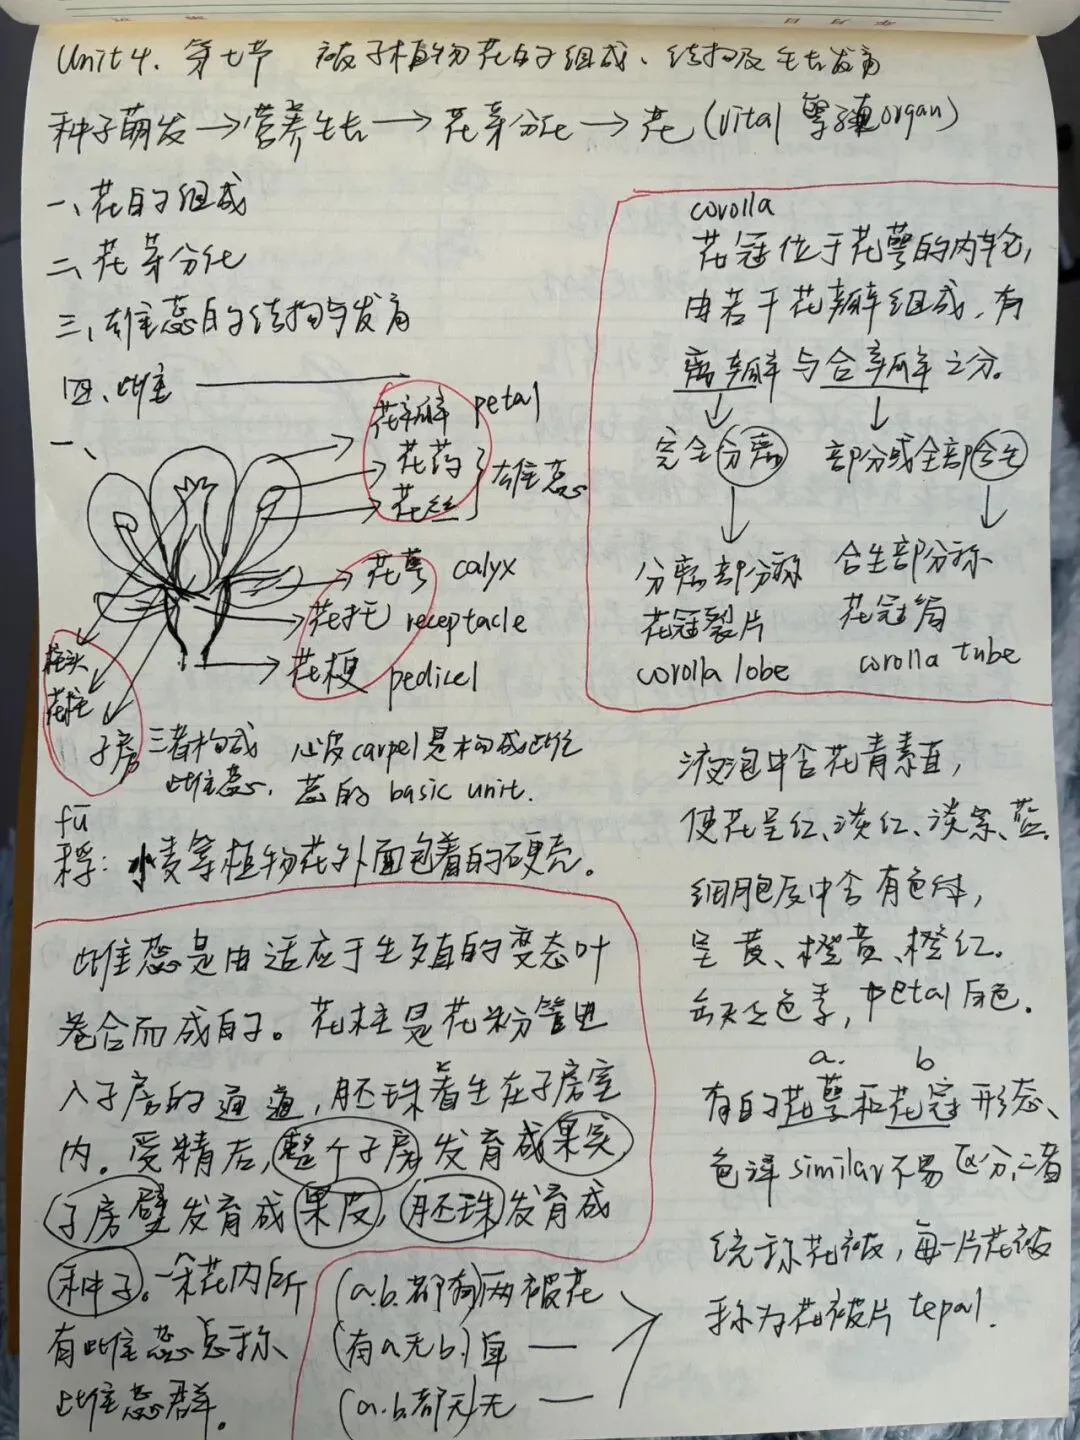 Unit 4. 第七节 被子植物花的组成、结构及生长发育
种子萌发→营养生长→花芽分化→花(vital 繁殖organ)
一、花的组成
二、花芽分化
三、雄蕊的结构与发育
四、雌蕊
一、
花瓣 petal
花药
花丝
雄蕊
花萼 calyx
花托 receptacle
花梗 pedicel
柱头
花柱
子房
三者构成
雌蕊.
心皮carpel是构成雌
蕊的 basic unit.
fū
稃: 小麦等植物花外面包着的硬壳。
雌蕊是由适应于生殖的变态叶
卷合而成的。花柱是花粉管进
入子房的通道,胚珠着生在子房室
内。受精后,整个子房发育成果实,
子房壁发育成果皮,胚珠发育成
种子。一朵花内所
有雌蕊总称
雌蕊群。
(a.b.都有)两被花
(有a无b.)单 —
(a.b.都无)无 —
corolla
花冠位于花萼的内轮,
由若干花瓣组成,有
离瓣与合瓣之分。
完全分离
部分或全部合生
分离部分称
花冠裂片
corolla lobe
合生部分称
花冠筒
corolla tube
液泡中含花青素苷,
使花呈红、淡红、淡紫、蓝.
细胞质中含有色体,
呈黄、橙黄、橙红.
若无色素, petal白色.
a. b
有的花萼和花冠形态、
色泽similar不易区分,二者
统称花被,每一片花被
称为花被片 tepal.